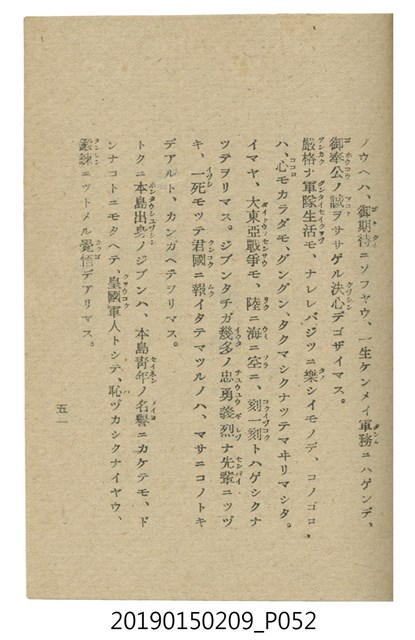 ノウヘハ、御期待ニソフヤウ、一生ケンメイ軍務ニハゲンデ、
御奉公ノ誠ヲササゲル決心デゴザイマス。
嚴格ナ軍隊生活モ、ナレレバジツニ樂シイモノデ、コノゴロ
ハ、心モカラダモ、グングン、タクマシクナツテマヰリマシタ。
イマヤ、大東亞戰爭モ、陸ニ海ニ空ニ、刻一刻トハゲシクナ
ツテヲリマス。ジブンタチガ幾多ノ忠勇義烈ナ先輩ニツヅ
キ、一死モツテ君國ニ報イタテマツルノハ、マサニコノトキ
デアルト、カンガヘテヲリマス。
トクニ本島出身ノジブンハ、本島靑年ノ名譽ニカケテモ、ド
ンナコトニモタヘテ、皇國軍人トシテ、恥ヅカシクナイヤウ、
鍛鍊ニツトメル覺悟デアリマス。
五一
20190150209_P052